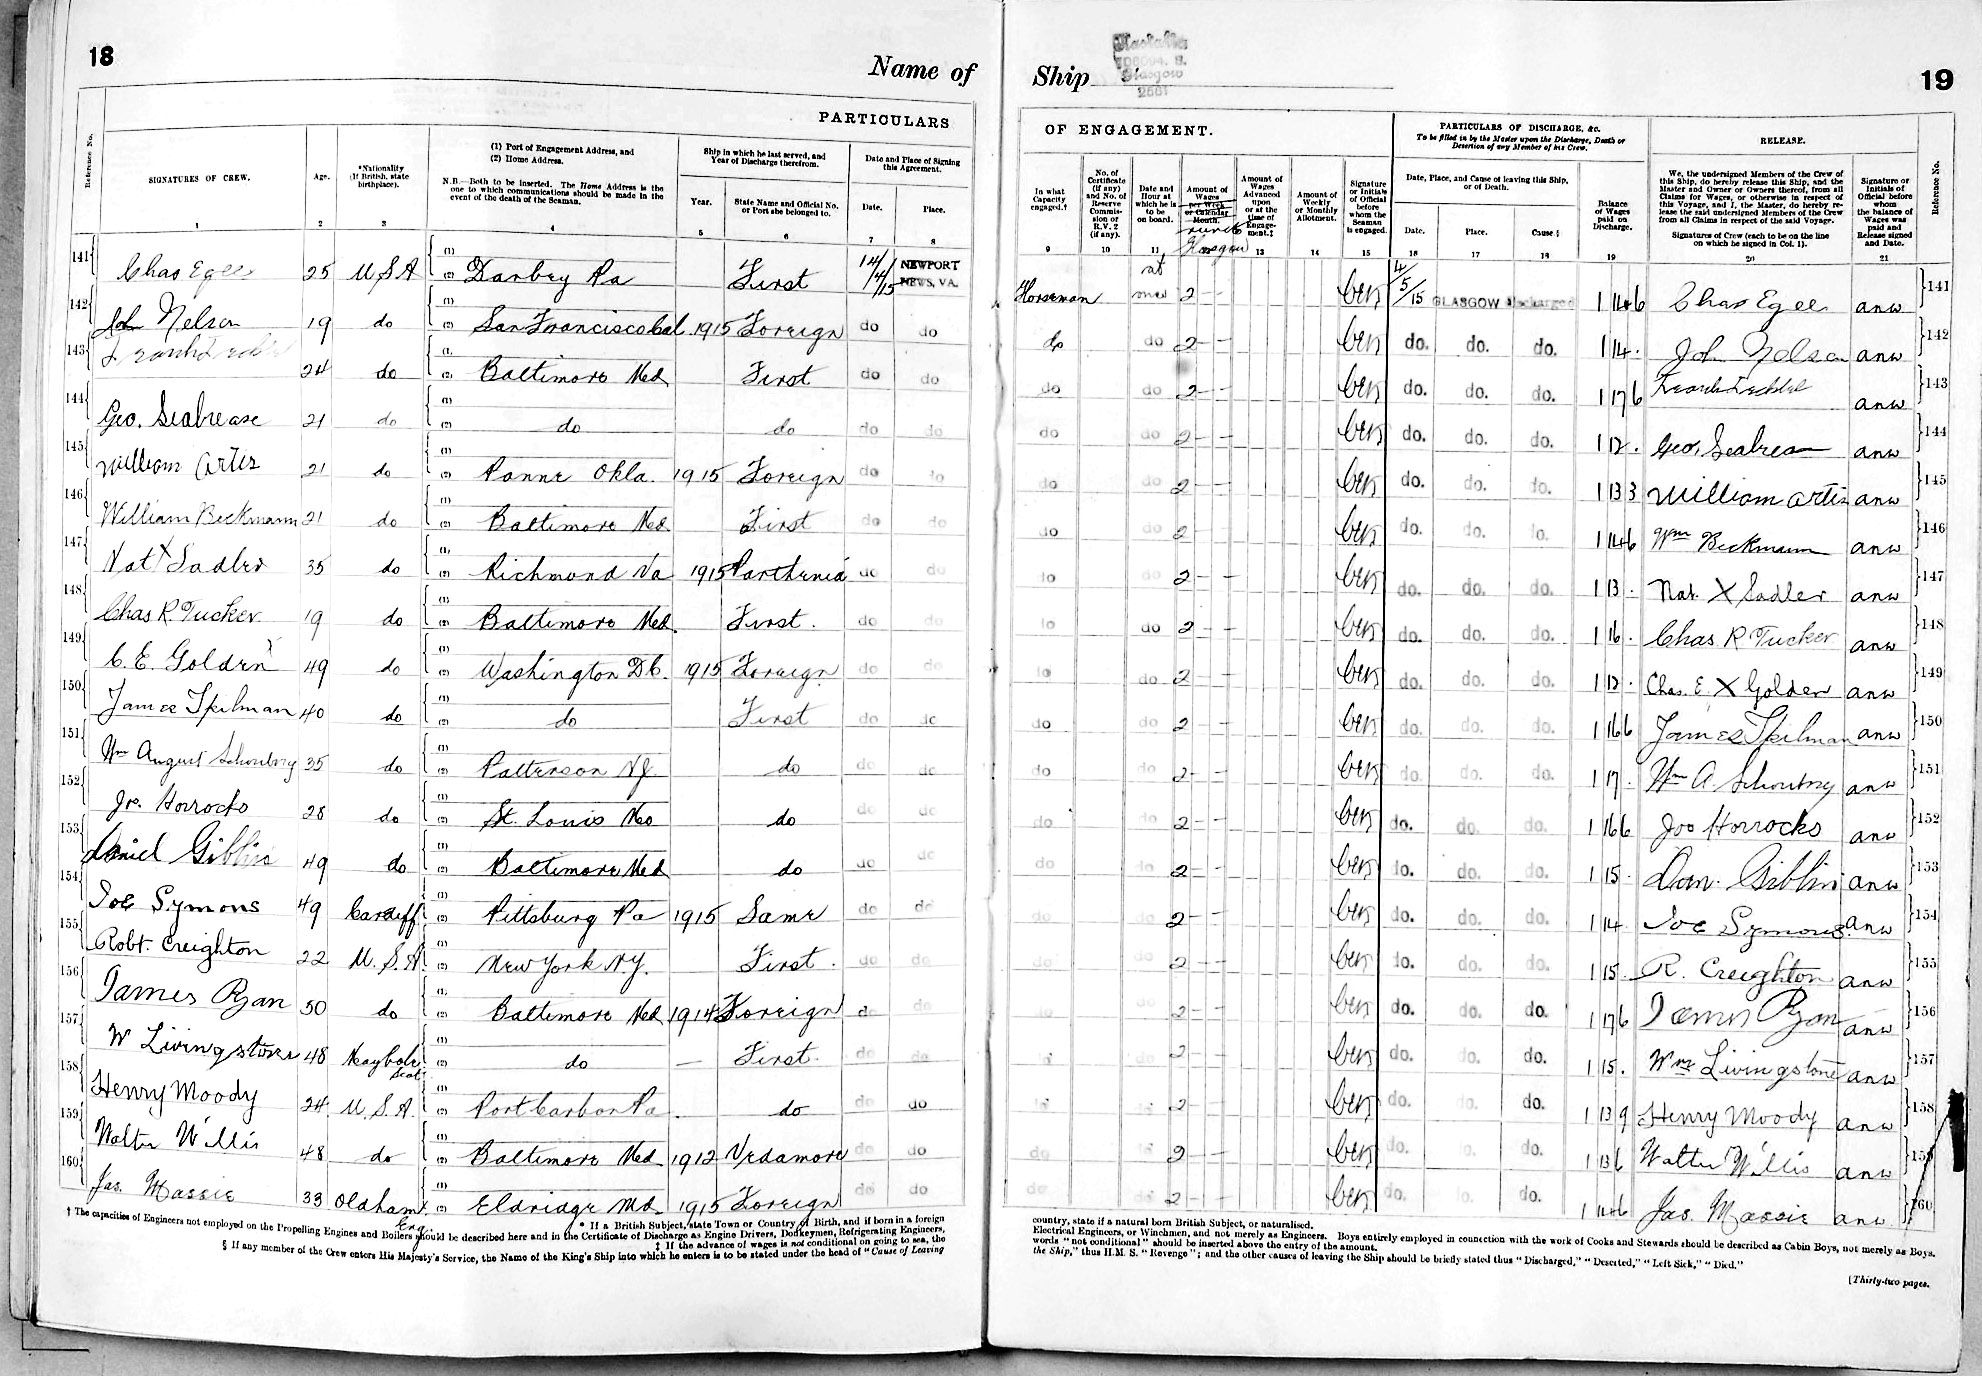 18
Name of
PARTICULARS
Reference No.
SIGNATURES OF CREW.
Age.
*Nationality
(If British, state
birthplace).
(1) Port of Engagement Address, and
(2) Home Address.
N.B.—Both to be inserted. The Home Address is the
one to which communications should be made in the
event of the death of the Seaman.
Ship in which he last served, and
Year of Discharge therefrom.
Year.
State Name and Official No.
or Port she belonged to.
Date and Place of Signing
this Agreement.
Date.
Place.
1 2 3 4 5 6 7 8
141 Chas Egee 25 U S A (1) (2) Darbey Pa First 14/4/15 NEWPORT NEWS, VA.
142 John Nelson 19 do (1) (2) San Francisco Cal 1915 Foreign do do
143 24 do (1) (2) Baltimore Md First do do
144 Geo. Seabrease 21 do (1) (2) do do do do
145 William Artis 21 do (1) (2) Okla. 1915 Foreign do do
146 William Beckmann 21 do (1) (2) Baltimore Md First do do
147 Nat X Sadler 35 do (1) (2) Richmond Va 1915 Parthenia do do
148 Chas R. Tucker 19 do (1) (2) Baltimore Md. First. do do
149 C. E. Golden X 49 do (1) (2) Washington D.C. 1915 Foreign do do
150 James Spilman 40 do (1) (2) do First do do
151 Wm August 35 do (1) (2) Patterson NJ do do do
152 Jos. Horrocks 28 do (1) (2) St. Louis Mo do do do
153 Daniel Giblin 49 do (1) (2) Baltimore Md do do do
154 Joe Symons 49 Cardiff (1) (2) Pittsburg Pa 1915 Same do do
155 Robt. Creighton 22 U. S. A. (1) (2) New York NY. First. do do
156 James Ryan 50 do (1) (2) Baltimore Md 1914 Foreign do do
157 W Livingstone 48 Maybole Scot (1) (2) do — First. do do
158 Henry Moody 24 U. S. A. (1) (2) Port Carbon Pa. do do do
159 Walter Willis 48 do (1) (2) Baltimore Md 1912 Vedamore do do
160 Jas. Massie 33 Oldham Eng. (1) (2) Eldridge Md. 1915 Foreign do do
† The capacities of Engineers not employed on the Propelling Engines and Boilers should be described here and in the Certificate of Discharge as Engine Drivers, Donkeymen, Refrigerating Engineers,
* If a British Subject, state Town or Country of Birth, and if born in a foreign
‡ If the advance of wages is not conditional on going to sea, the
§ If any member of the Crew enters His Majesty's Service, the Name of the King's Ship into which he enters is to be stated under the head of "Cause of Leaving
Ship
Glasgow
2561
19
OF ENGAGEMENT.
PARTICULARS OF DISCHARGE, &c.
To be filled in by the Master upon the Discharge, Death or
Desertion of any Member of his Crew.
RELEASE.
In what
Capacity
engaged.†
No. of
Certificate
(if any)
and No. of
Reserve
Commis-
sion or
R.V. 2
(if any).
Date and
Hour at
which he is
to be
on board.
Amount of
Wages
per Week
or Calendar
Month.
Glasgow
Amount of
Wages
Advanced
upon
or at the
time of
Engage-
ment.‡
Amount of
Weekly
or Monthly
Allotment.
Signature
or Initials
of Official
before
whom the
Seaman
is engaged.
Date, Place, and Cause of leaving this Ship,
or of Death.
Date.
Place.
Cause.§
Balance
of Wages
paid on
Discharge.
We, the undersigned Members of the Crew of
this Ship, do hereby release this Ship, and the
Master and Owner or Owners thereof, from all
Claims for Wages, or otherwise in respect of
this Voyage, and I, the Master, do hereby re-
lease the said undersigned Members of the Crew
from all Claims in respect of the said Voyage.
Signatures of Crew (each to be on the line
on which he signed in Col. 1).
Signature or
Initials of
Official before
whom
the balance of
Wages was
paid and
Release signed
and Date.
Reference No.
9 10 11 13 14 15 16 17 18 19 20 21
Horseman at once 2 – – 4/5/15 GLASGOW discharged 1 14 6 Chas Egee anw 141
do do 2 – – do. do. do. 1 14 . John Nelson anw 142
do do 2 – – do. do. do. 1 17 6 anw 143
do do 2 – – do. do. do. 1 12 . Geo. Seabrease anw 144
do do 2 – – do. do. do. 1 13 3 William Artis anw 145
do do 2 – – do. do. do. 1 14 6 Wm Beckmann anw 146
do do 2 – – do. do. do. 1 13 . Nat. X Sadler anw 147
do do 2 – – do. do. do. 1 16 . Chas R Tucker anw 148
do do 2 – – do. do. do. 1 12 . Chas. E. X Golden anw 149
do do 2 – – do. do. do. 1 16 6 James Spilman anw 150
do do 2 – – do. do. do. 1 17 . Wm A. anw 151
do do 2 – – do. do. do. 1 16 6 Jos Horrocks anw 152
do do 2 – – do. do. do. 1 15 . Dan. Giblin anw 153
do do 2 – – do. do. do. 1 14 . Joe Symons anw 154
do do 2 – – do. do. do. 1 15 . R. Creighton anw 155
do do 2 – – do. do. do. 1 17 6 James Ryan anw 156
do do 2 – – do. do. do. 1 15 . Wm Livingstone anw 157
do do 2 – – do. do. do. 1 13 9 Henry Moody anw 158
do do 2 – – do. do. do. 1 13 6 Walter Willis anw 159
do do 2 – – do. do. do. 1 14 6 Jas. Massie anw 160
country, state if a natural born British Subject, or naturalised.
Electrical Engineers, or Winchmen, and not merely as Engineers. Boys entirely employed in connection with the work of Cooks and Stewards should be described as Cabin Boys, not merely as Boys.
words "not conditional" should be inserted above the entry of the amount.
the Ship," thus H.M.S. "Revenge"; and the other causes of leaving the Ship should be briefly stated thus "Discharged," "Deserted," "Left Sick," "Died."
[Thirty-two pages.